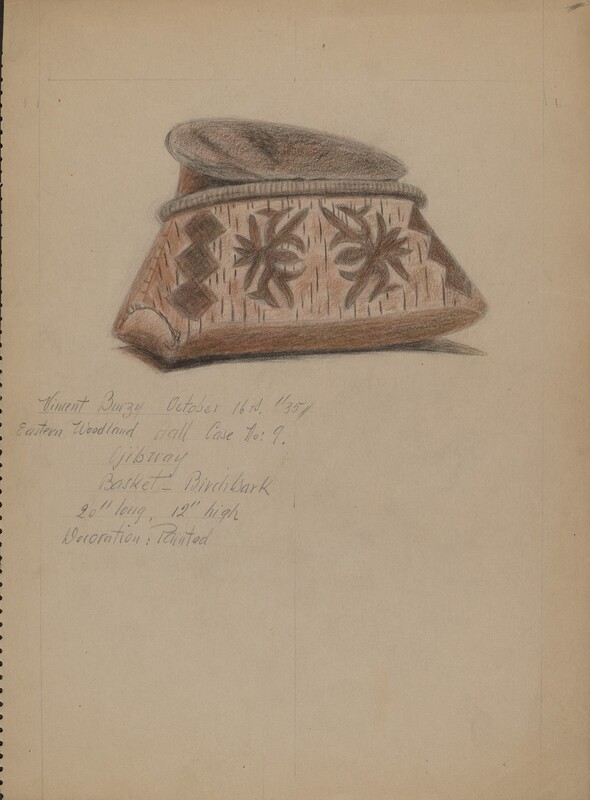 Vincent Burzy October 16th 1935
Eastern Woodland Hall Case No: 9.
Ojibway
Basket - Birchbark
20" long, 12" high
Decoration: Painted